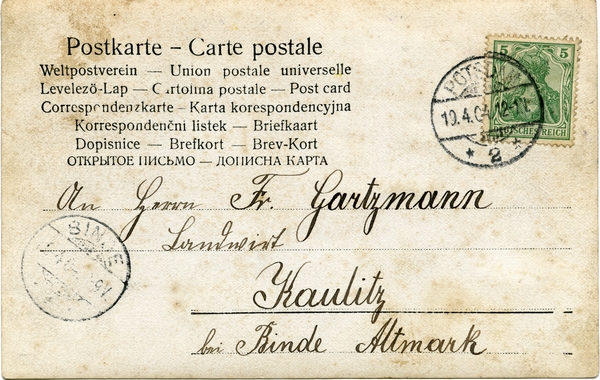 Postkarte – Carte postale
Weltpostverein — Union postale universelle
Levelező-Lap — Cartolina postale — Post card
Correspondenzkarte - Karta korespondencyjna
Korrespondenční listek — Briefkaart
Dopisnice — Brefkort — Brev-Kort
ОТКРЫТОЕ ПИСЬМО — ДОПИСНА КАРТА
5 5
POTSDAM
19.4.04. 12-1
* 2
DEUTSCHES REICH
An Herrn Fr. Gartzmann
Landwirt
Kaulitz
bei Binde Altmark
BINDE